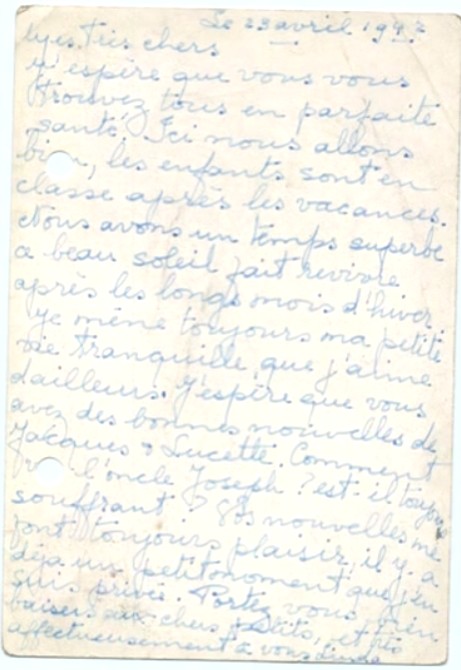 Le 23 avril 194
Mes très chers
J'espère que vous vous
trouvez tous en parfaite
santé. Ici nous allons
bien, les enfants sont en
classe après les vacances.
Nous avons un temps superbe
ce beau soleil fait revivre
après les longs mois d'hiver.
Je mène toujours ma petite
vie tranquille que j'aime
d'ailleurs. J'espère que vous
avez des bonnes nouvelles de
Jacques & Lucette. Comment
va l'oncle Joseph? est-il toujours
souffrant? Vos nouvelles me
font toujours plaisir, il y a
déjà un petit moment que j'en
suis privée. Portez vous bien
baisers aux chers petits, et très
affectueusement à vous